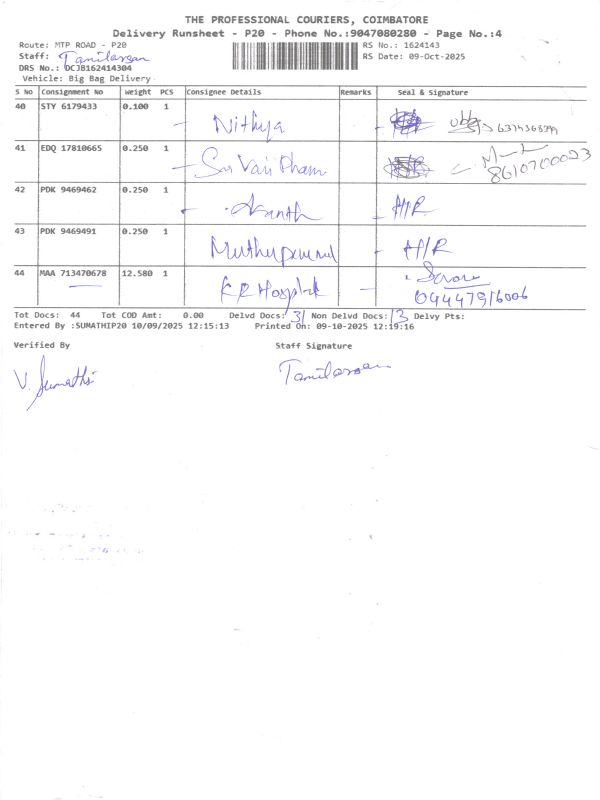 THE PROFESSIONAL COURIERS, COIMBATORE
Delivery Runsheet - P20 - Phone No.:9047080280 - Page No.:4
Route: MTP ROAD - P20 RS No.: 1624143
Staff: Tamilarasan RS Date: 09-Oct-2025
DRS No.: DCJB162414304
Vehicle: Big Bag Delivery
S No Consignment No Weight PCS Consignee Details Remarks Seal & Signature
40 STY 6179433 0.100 1 Nithya 6374363299
41 EDQ 17810665 0.250 1 Sri Vari Pham 8610700023
42 PDK 9469462 0.250 1 Ananth A/R
43 PDK 9469491 0.250 1 Muthuperumal A/R
44 MAA 713470678 12.580 1 KR Hospital 04447916006
Tot Docs: 44 Tot COD Amt: 0.00 Delvd Docs: 31 Non Delvd Docs: 13 Delvy Pts:
Entered By :SUMATHIP20 10/09/2025 12:15:13 Printed On: 09-10-2025 12:19:16
Verified By Staff Signature
V. Sumathi Tamilarasan